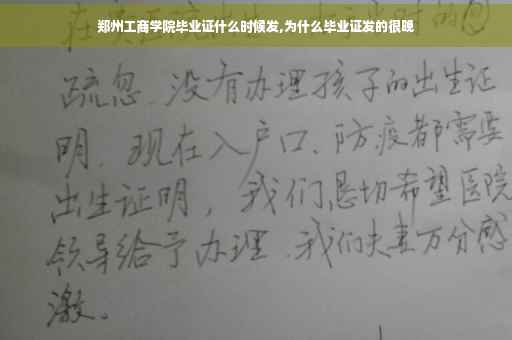 郑州工商学院毕业证什么时候发,为什么毕业证发的很晚
疏忽、没有办理孩子的出生证
明、现在入户口、防疫都需要
出生证明，我们恳切希望医院
领导给予办理、我们夫妻万分感
激。